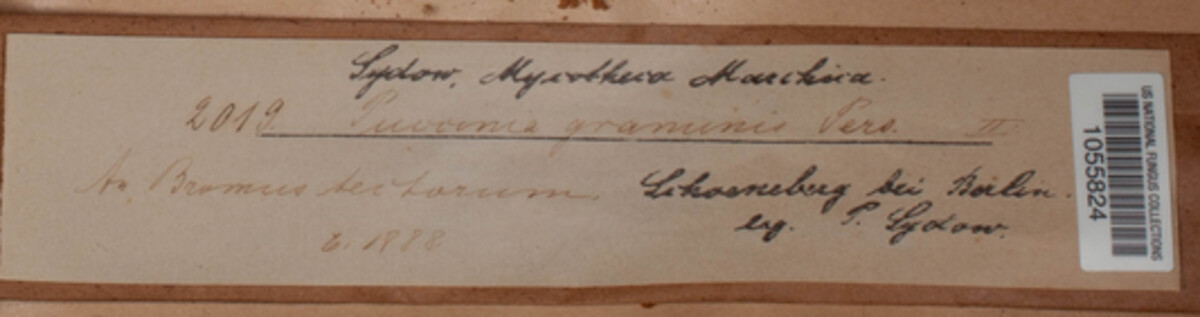 Sydow, Mycotheca Marchica.
2019. Puccinia graminis Pers. II.
An Bromus tectorum. Schoeneberg bei Berlin.
6. 1888 leg. P. Sydow.
US NATIONAL FUNGUS COLLECTIONS
1055824